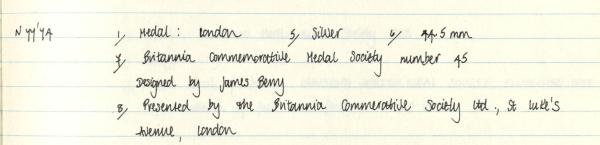 N 44'74 1, Medal: London 5, Silver 6, 44.5 mm
7, Britannia Commemorative Medal Society number 45
Designed by James Berry
8, Presented by the Britannia Commerative Society Ltd., St Luke's
Avenue, London